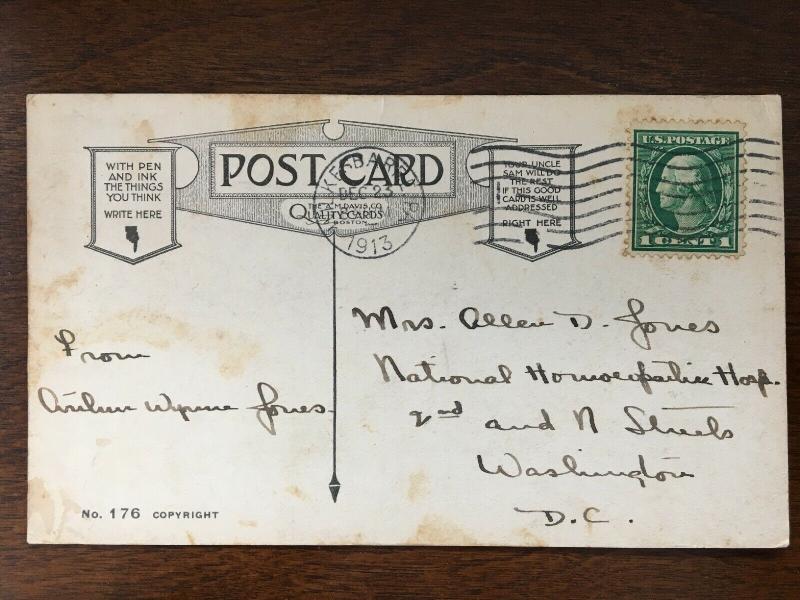 WITH PEN
AND INK
THE THINGS
YOU THINK
WRITE HERE
POST CARD
THE A.M. DAVIS CO.
QUALITY CARDS
BOSTON
DEC 23
1913
YOUR UNCLE
SAM WILL DO
THE REST
IF THIS GOOD
CARD IS WELL
ADDRESSED
RIGHT HERE
U.S. POSTAGE
1 CENT 1
From
Arthur Wynne Jones.
Mrs. Allen D. Jones
National Homoeopathic Hosp.
2nd and N Streets
Washington
D.C.
No. 176 COPYRIGHT